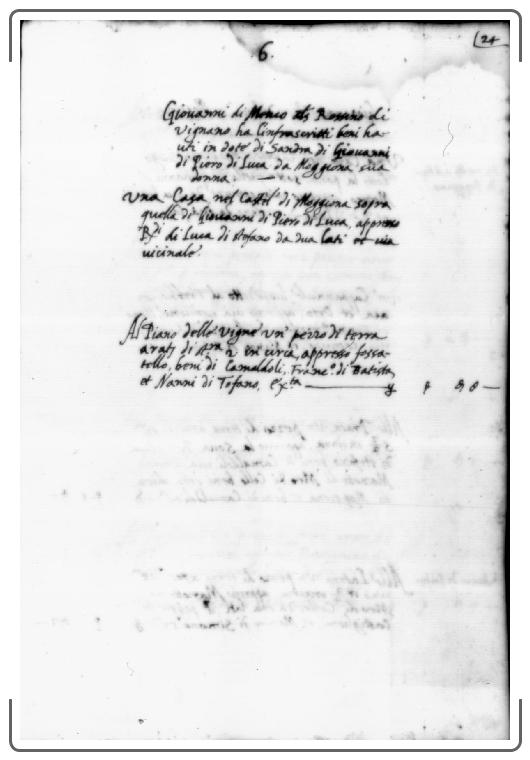 24
6.
Giovanni di Menco als Rossino di
Vignano ha l'infrascritti beni ha=
uti in dote di Sandra di Giovanni
di Piero di Luca da Moggiona sua
donna.
Una Casa nel Castel di Moggiona sopra
quella di Giovanni di Piero di Luca, appresso
Rdi di Luca di stefano da dua lati et via
vicinale.
Al Piano delle vigne un' pezzo di terra
di sra 2 in circa, appresso fossa=
tello, beni di Camaldoli, Franco. di Batista,
et Nanni di Tofano, exta